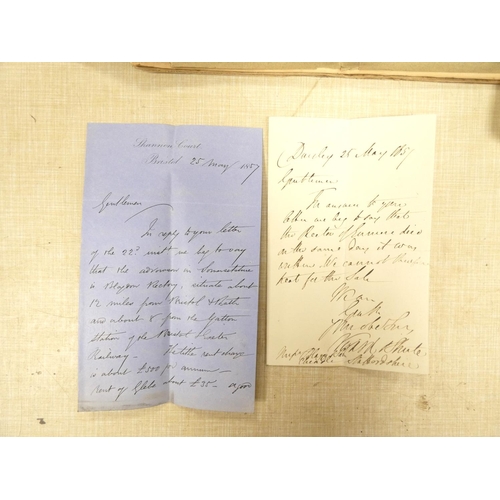 Shannon Court
Bristol 25 May 1857
Gentlemen
In reply to your letter
of the 22d inst we beg to say
that the advowson in Somersetshire
is Rectory, situate about
12 miles from Bristol & Bath
and about 8 from the Yatton
Station of the Bristol & Exeter
Railway - The tithe rent charge
is about £500 per annum -
rent of Glebe about £35 - a good
Dursley 25 May 1857
Gentlemen
In answer to your
letter we beg to say that
the Rector of died
on the same day it was
written. We cannot
for the Sale
We are
Gentn
Your obt Servts
Messrs
Cheadle Staffordshire